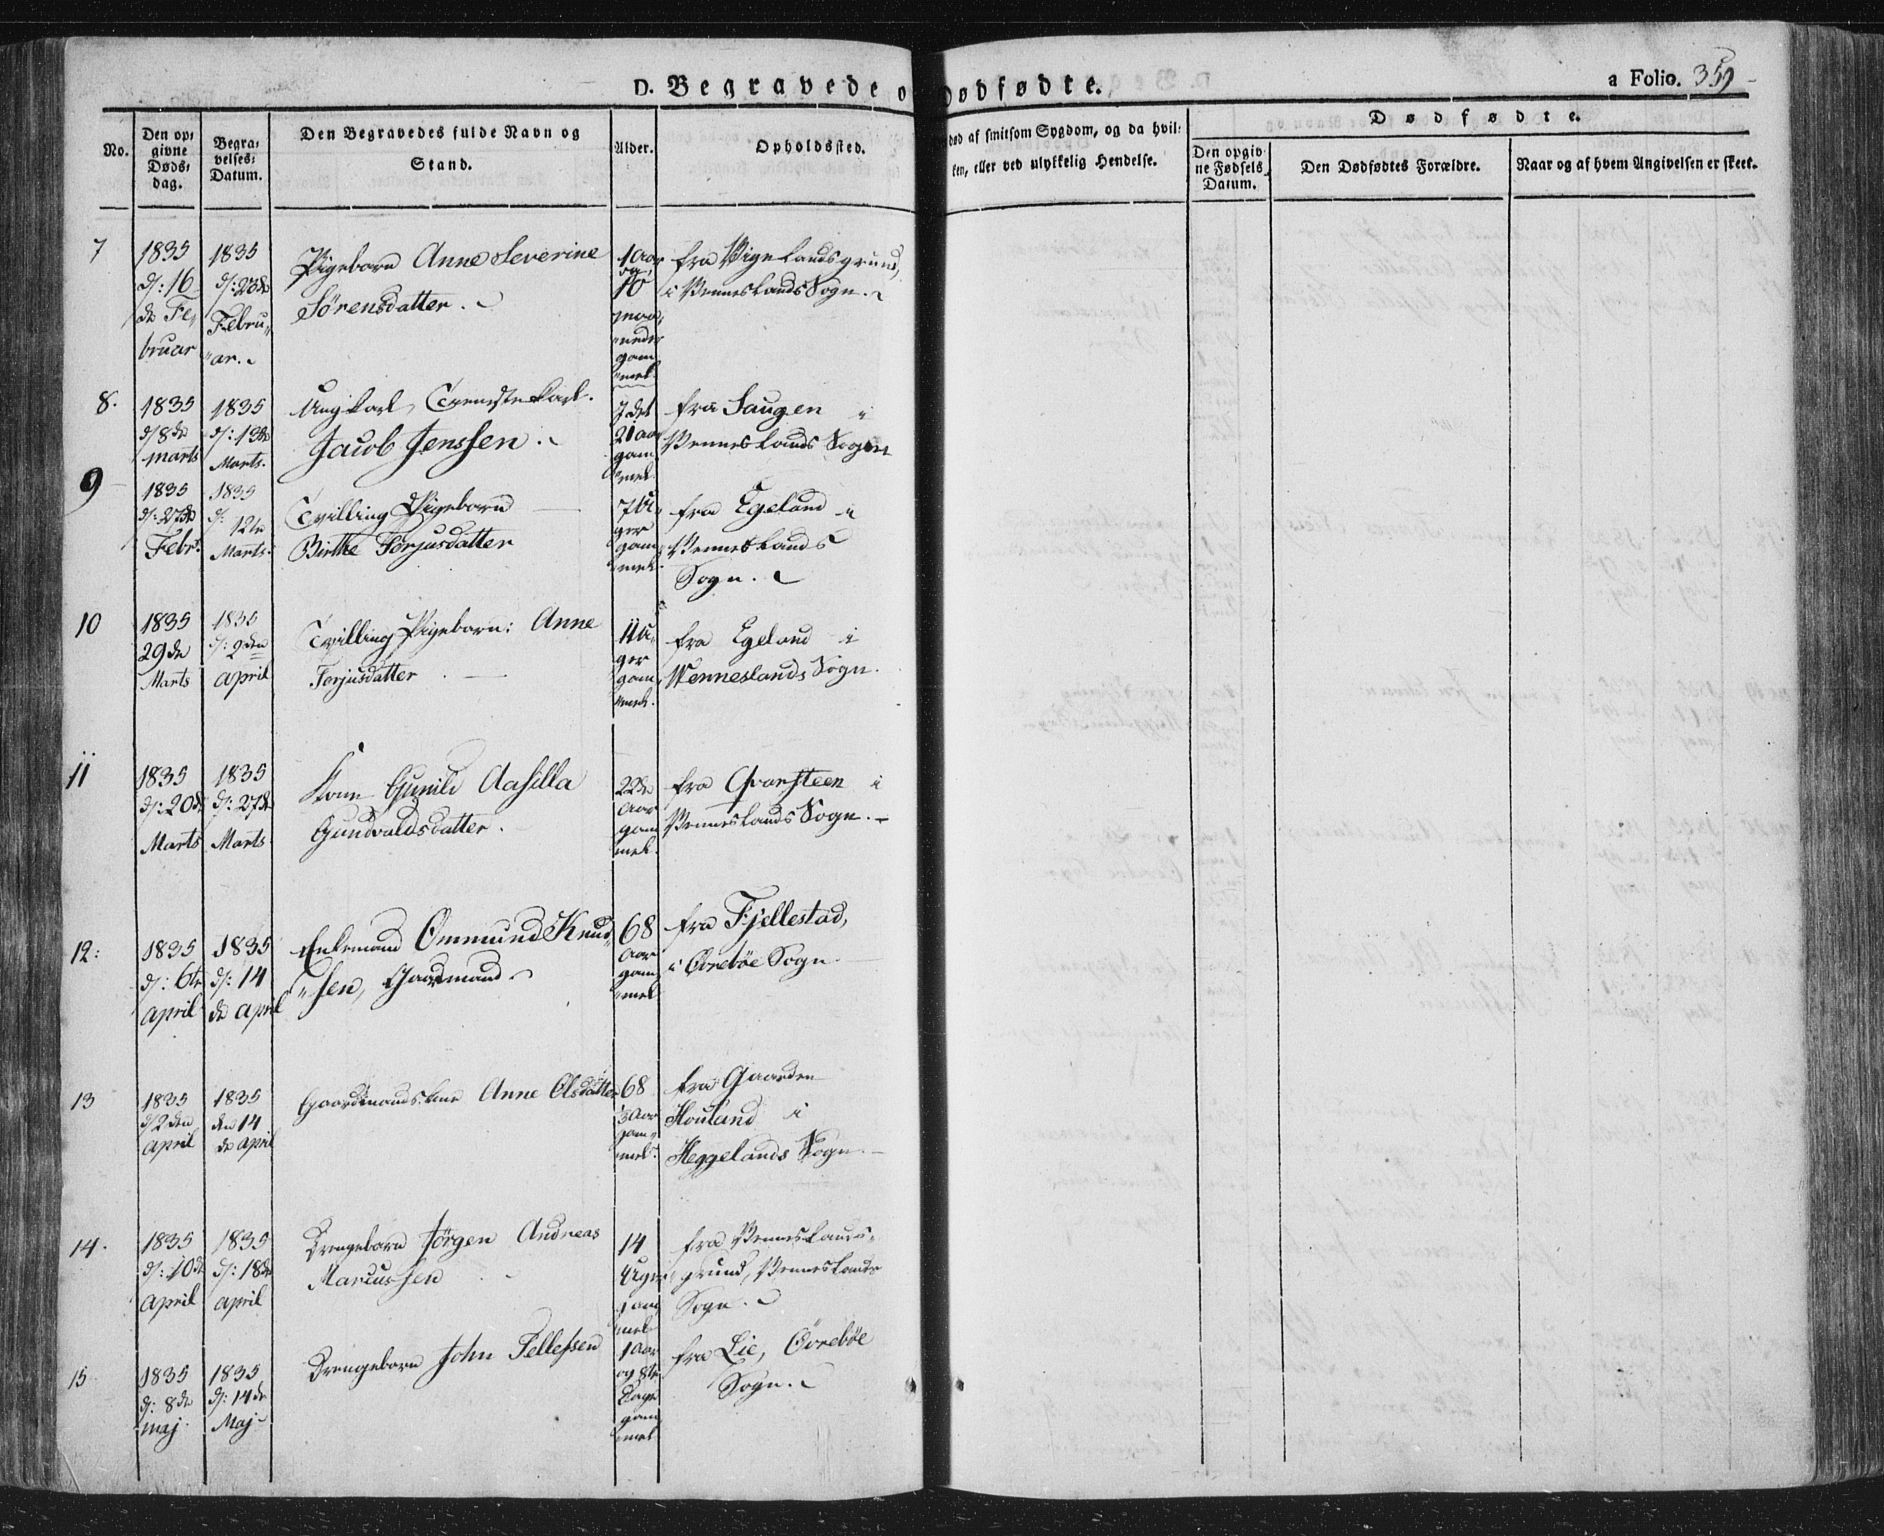 D. Begravede o
Dødfødte.
a Folio. 359
No.
Den op-
givne
Døds-
dag.
Begra-
velses-
Datum.
Den Begravedes fulde Navn og
Stand.
Alder.
Opholdssted.
død af smitsom Sygdom, og da hvil-
ken, eller ved ulykkelig Hendelse.
Dødfødte.
Den opgiv-
ne Fødsels
Datum.
Den Dødfødtes Forældre.
Naar og af hvem Angivelsen er skeet.
7
1835
d: 16
de Fe-
bruar
1835
d: 23de
Febru-
ar.
Pigebarn Anne Severine
Sørensdatter.
1 Aar
og
10
maa-
neder
gam
mel.
fra Vigelandsgrund,
i Venneslands Sogn.
8.
1835
d 8de
marts
1835
d: 13de
Marts.
Ungkarl, Tjenestekarl.
Jacob Jenssen.
i det
21 aar
gam
mel.
fra Saugen i
Venneslands Sogn
9
1835
d: 27de
Febr.
1835
d: 12te
Marts.
Tvilling Pigebarn
Birthe Terjusdatter
7 U-
ger
gam
mel.
fra Egeland i
Venneslands
Sogn.
10
1835
29de
Marts
1835
d: 9den
april
Tvilling Pigebarn: Anne
Terjusdatter
11 U-
ger
gam
mel.
fra Egeland i
Venneslands Sogn.
11
1835
d: 20de
Marts
1835
d: 27de
Marts.
Kone Gunild Aasilla
Gundvaldsdatter.
22de
aar
gam
mel.
fra Qvarsteen i
Venneslands Sogn.
12:
1835
d: 6te
april
1835
d: 14
de april
Enkemand Ommund Knud-
sen, Gaardmand.
68
aar
gam
mel
fra Fjellestad,
i Øvrebøe Sogn.
13
1835
d 2den
april
1835
den 14
de april
Gaardmands Kone Anne Olsdatter
68
aar
gam-
mel.
fra Gaarden
Houland i
Heggelands Sogn.
14.
1835
d: 10de
april
1835
d: 18de
april
Drengebarn Jørgen Andreas
Marcussen
14
Uger
gam
mel
fra Venneslands-
grund, Venneslands
Sogn.
15
1835
d: 8de
maj.
1835
d: 14de
Maj.
Drengebarn John Tellefsen
1 Aar
og 8te
Dage
gam
mel
fra Lie, Øvrebøe
Sogn.